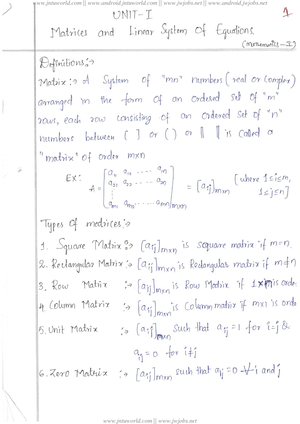 www.jntuworld.com || www.android.jntuworld.com || www.jwjobs.net || www.android.jwjobs.net
1
UNIT-I
Matrices and Linear System Of Equations
(Mathematics-I)
Definitions:→
Matrix:→ A System of "mn" numbers (real or complex)
arranged in the form of an ordered set of "m"
rows, each row consisting of an ordered set of "n"
numbers between [ ] or ( ) or || || is called a
"matrix" of order m×n
Ex: A = [a11 a12 ..... a1n
a21 a22 ..... a2n
am1 am2 ..... amn]m×n = [aij]m×n [where 1≤i≤m, 1≤j≤n]
Types of matrices:→
1. Square Matrix:→ [aij]m×n is square matrix if m=n
2. Rectangular Matrix:→ [aij]m×n is Rectangular matrix if m≠n
3. Row Matrix :→ [aij]m×n is Row Matrix if 1×n is order
4. Column Matrix :→ [aij]m×n is Column matrix if m×1 is order
5. Unit Matrix :→ [aij]m×n such that aij=1 for i=j &
aij=0 for i≠j
6. Zero Matrix :→ [aij]m×n such that aij=0 ∀ i and j
www.jntuworld.com || www.jwjobs.net